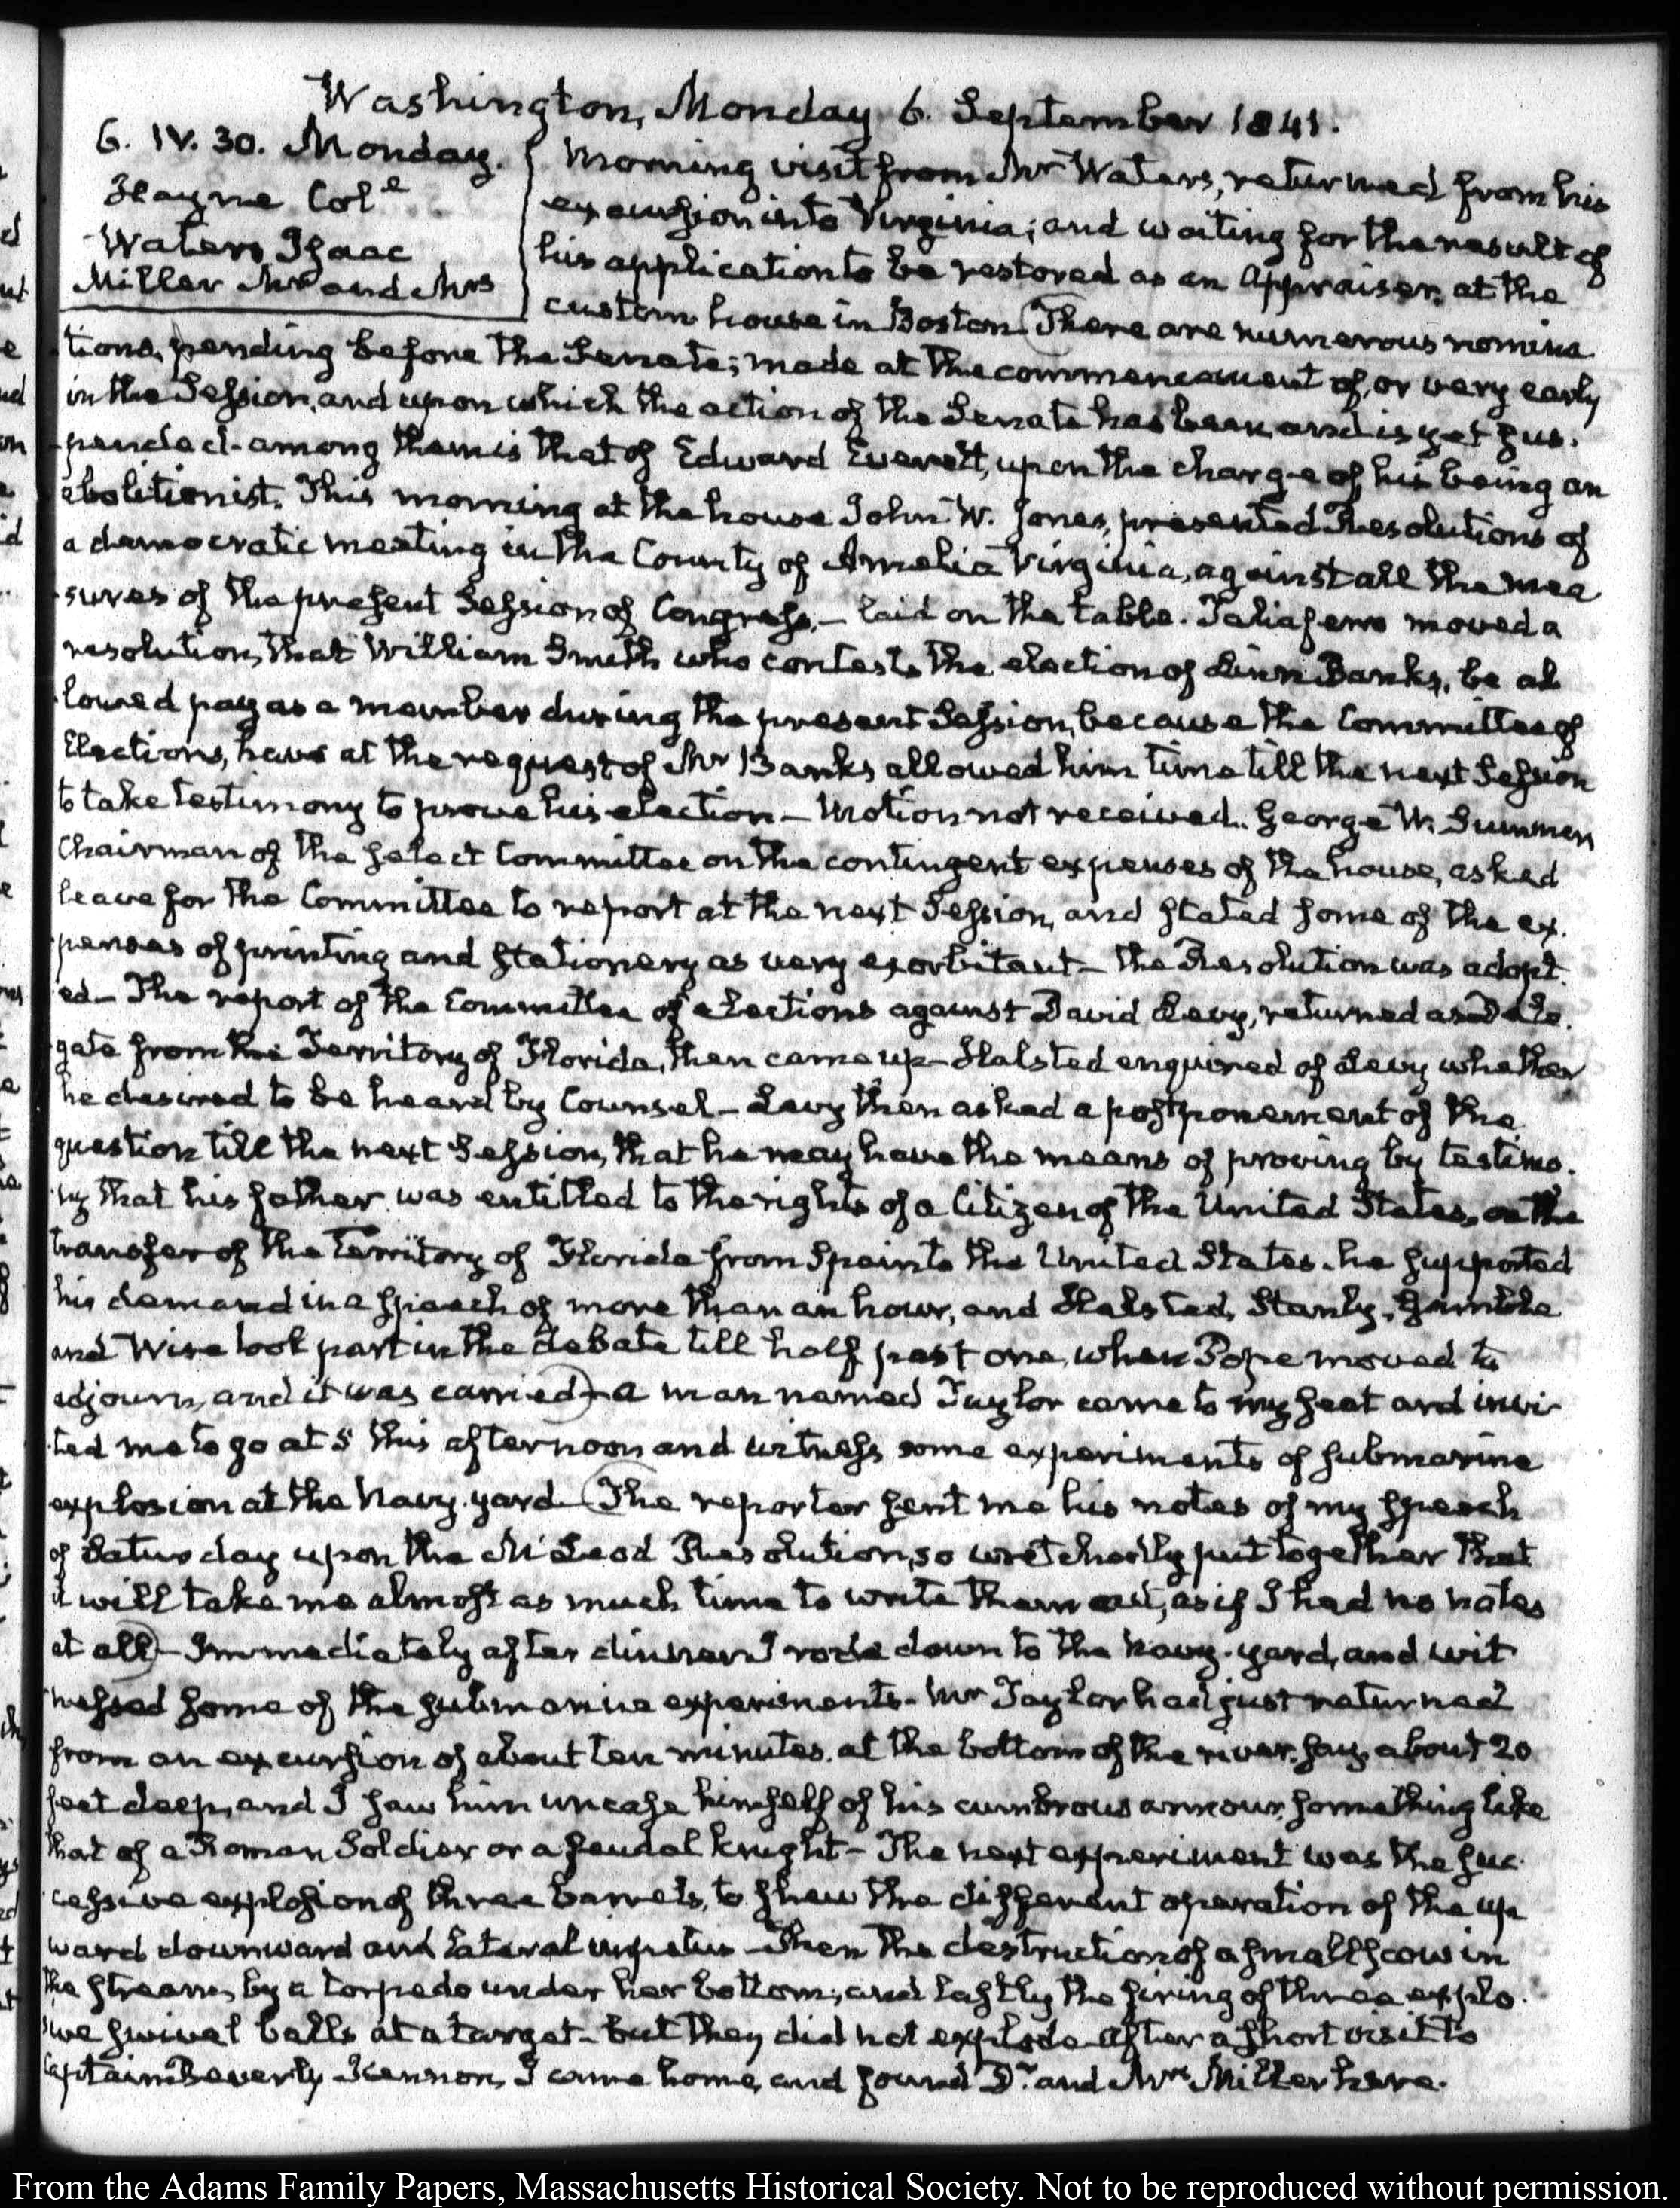 Washington, Monday 6. September 1841.
6. IV. 30. Monday.
Hayne Colᵉ
Waters Isaac
Miller Mr and Mrs
Morning visit from Mr Waters, returned from his
excursion into Virginia; and waiting for the result of
his application to be restored as an Appraiser, at the
custom house in Boston (There are numerous nomina
tions, pending before the Senate; made at the commencement of, or very early
in the Session, and upon which the action of the Senate has been, and is yet sus.
pended - among them is that of Edward Everett, upon the charge of his being an
abolitionist. This morning at the house John W. Jones, presented Resolutions of
a democratic meeting in the County of Amelia Virginia, against all the mea
sures of the present Session of Congress, – laid on the table. Taliaferro moved a
resolution, that William Smith who contests the election of Linn Banks, be al
lowed pay as a member during the present Session, because the Committee of
Elections, have at the request of Mr Banks allowed him time till the next Session
to take testimony to prove his election – Motion not received. George W. Summers
Chairman of the select Committee on the contingent expenses of the house, asked
leave for the Committee to report at the next Session, and stated some of the ex.
penses of printing and stationery as very exorbitant – the Resolution was adopt.
ed – The report of the Committee of elections against David Levy, returned as Dele.
gate from the Territory of Florida, then came up – Halsted enquired of Levy whether
he desired to be heard by Counsel – Levy then asked a postponement of the
question till the next Session, that he may have the means of proving by testimo.
ny that his father was entitled to the rights of a Citizen of the United States, on the
transfer of the Territory of Florida from Spain to the United States. he supported
his demand in a speech of more than an hour, and Halsted, Stanly, Gamble
and Wise took part in the debate till half past one, when Pope moved to
adjourn, and it was carried) – a man named Taylor came to my seat and invi
ted me to go at 5 this afternoon and witness some experiments of submarine
explosion at the Navy-yard – (The reporter sent me his notes of my speech
of Saturday upon the McLeod Resolution, so wretchedly put together that
it will take me almost as much time to write them out, as if I had no notes
at all) – Immediately after dinner I rode down to the Navy-yard, and wit
nessed some of the submarine experiments – Mr Taylor had just returned
from an excursion of about ten minutes at the bottom of the river, say about 20
feet deep, and I saw him uncase himself of his cumbrous armour, something like
that of a Roman Soldier or a feudal knight – The next experiment was the suc
cessive explosion of three barrels, to shew the different operation of the up
ward downward and lateral impetus – Then the destruction of a small scow in
the stream, by a torpedo under her bottom; and lastly the firing of three explo.
sive swivel balls at a target – but they did not explode – After a short visit to
Captain Beverly Kennon, I came home, and found Dr. and Mrs Miller here.
From the Adams Family Papers, Massachusetts Historical Society. Not to be reproduced without permission.